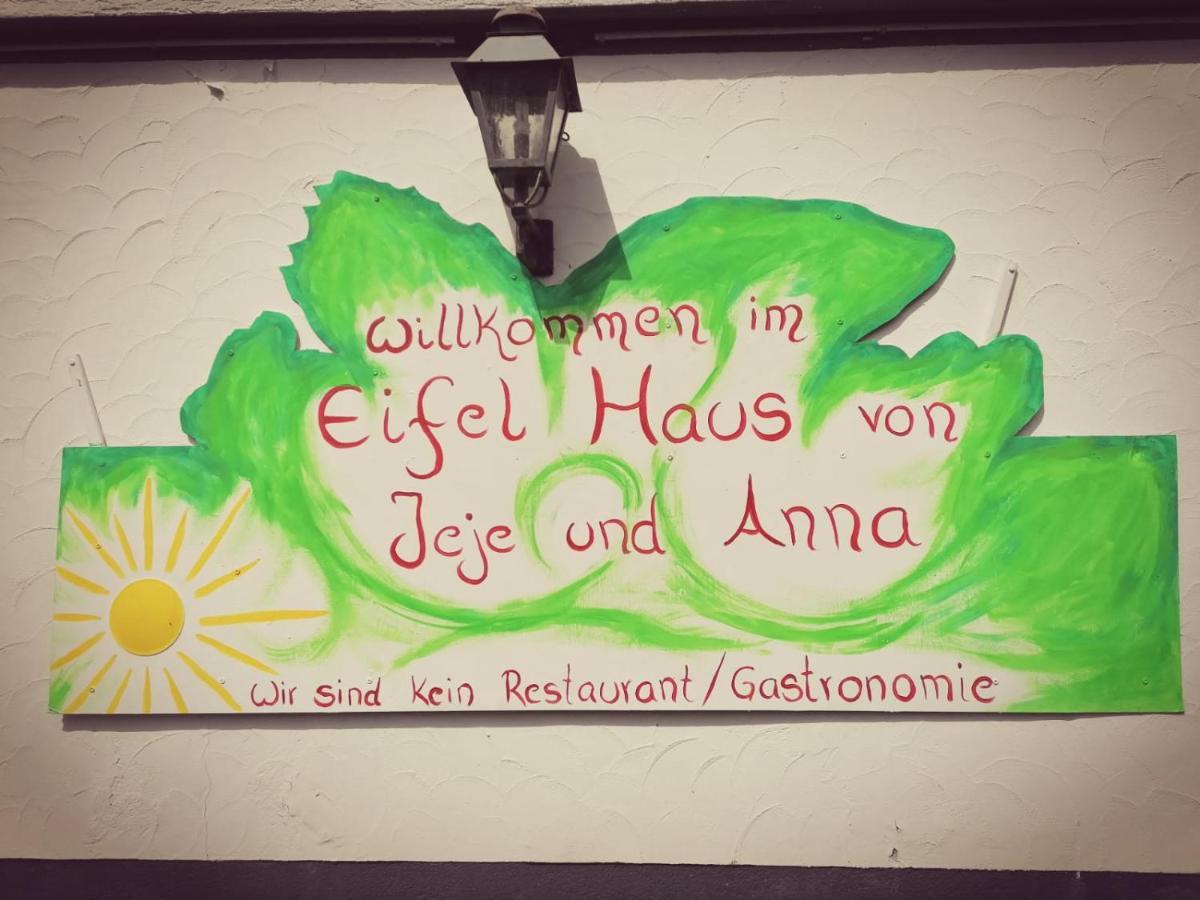 Willkommen im
Eifel Haus von
Jeje und Anna
Wir sind kein Restaurant/Gastronomie